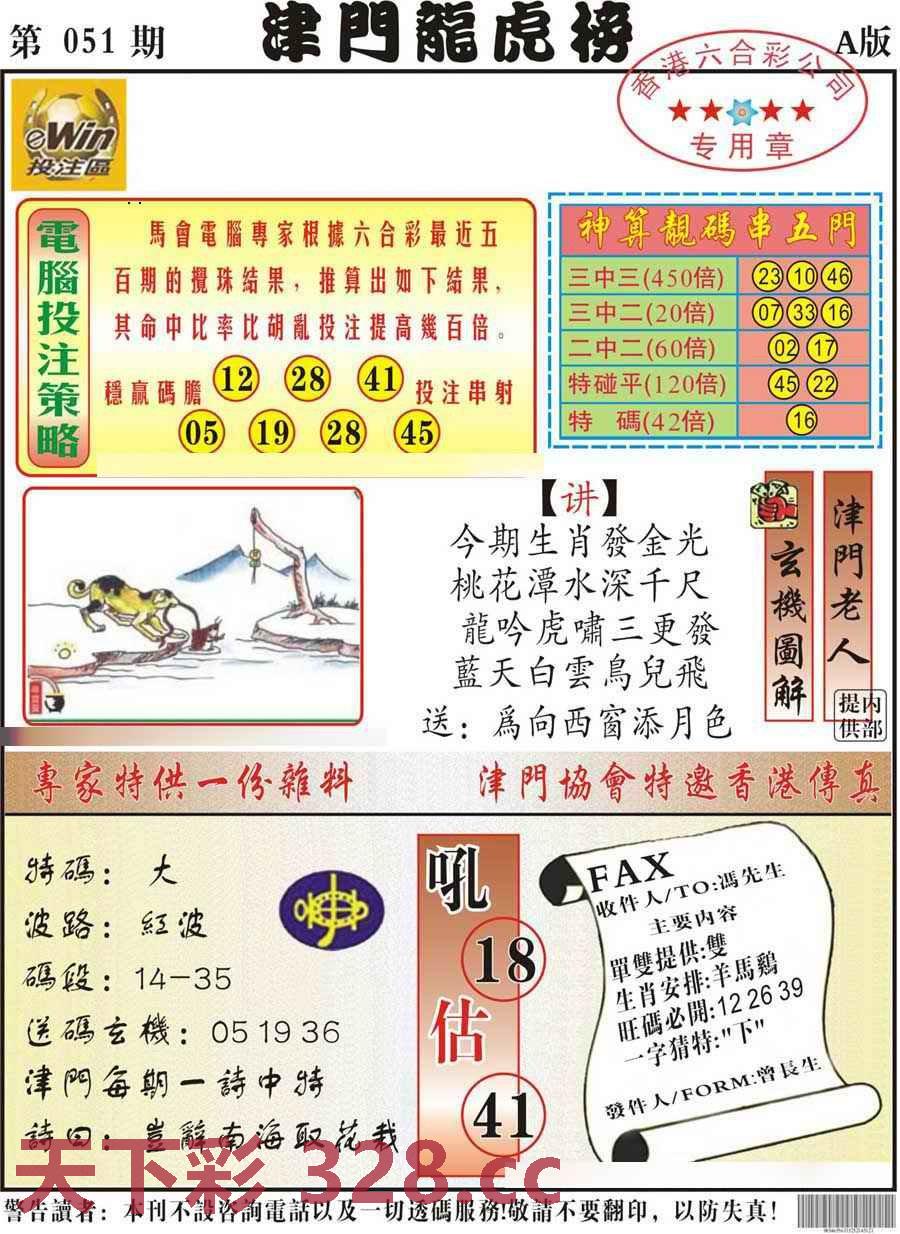 第 051 期
津門龍虎榜
A版
香港六合彩公司
专用章
eWin
投注區
電腦投注策略
馬會電腦專家根據六合彩最近五
百期的攪珠結果，推算出如下結果，
其命中比率比胡亂投注提高幾百倍。
穩贏碼膽 12 28 41 投注串射
05 19 28 45
神算靚碼串五門
三中三(450倍) 23 10 46
三中二(20倍) 07 33 16
二中二(60倍) 02 17
特碰平(120倍) 45 22
特 碼(42倍) 16
【讲】
今期生肖發金光
桃花潭水深千尺
龍吟虎嘯三更發
藍天白雲鳥兒飛
送：爲向西窗添月色
玄機圖解
津門老人
内部提供
專家特供一份雜料
津門協會特邀香港傳真
特碼：大
波路：紅波
碼段：14-35
送碼玄機：05 19 36
津門每期一詩中特
詩曰：豈辭南海取花栽
吼
18
估
41
FAX
收件人/TO:馮先生
主要内容
單雙提供:雙
生肖安排:羊馬鷄
旺碼必開:12 26 39
一字猜特:"下"
發件人/FORM:曾長生
天下彩 328.cc
警告讀者：本刊不設咨詢電話以及一切透碼服務!敬請不要翻印，以防失真!